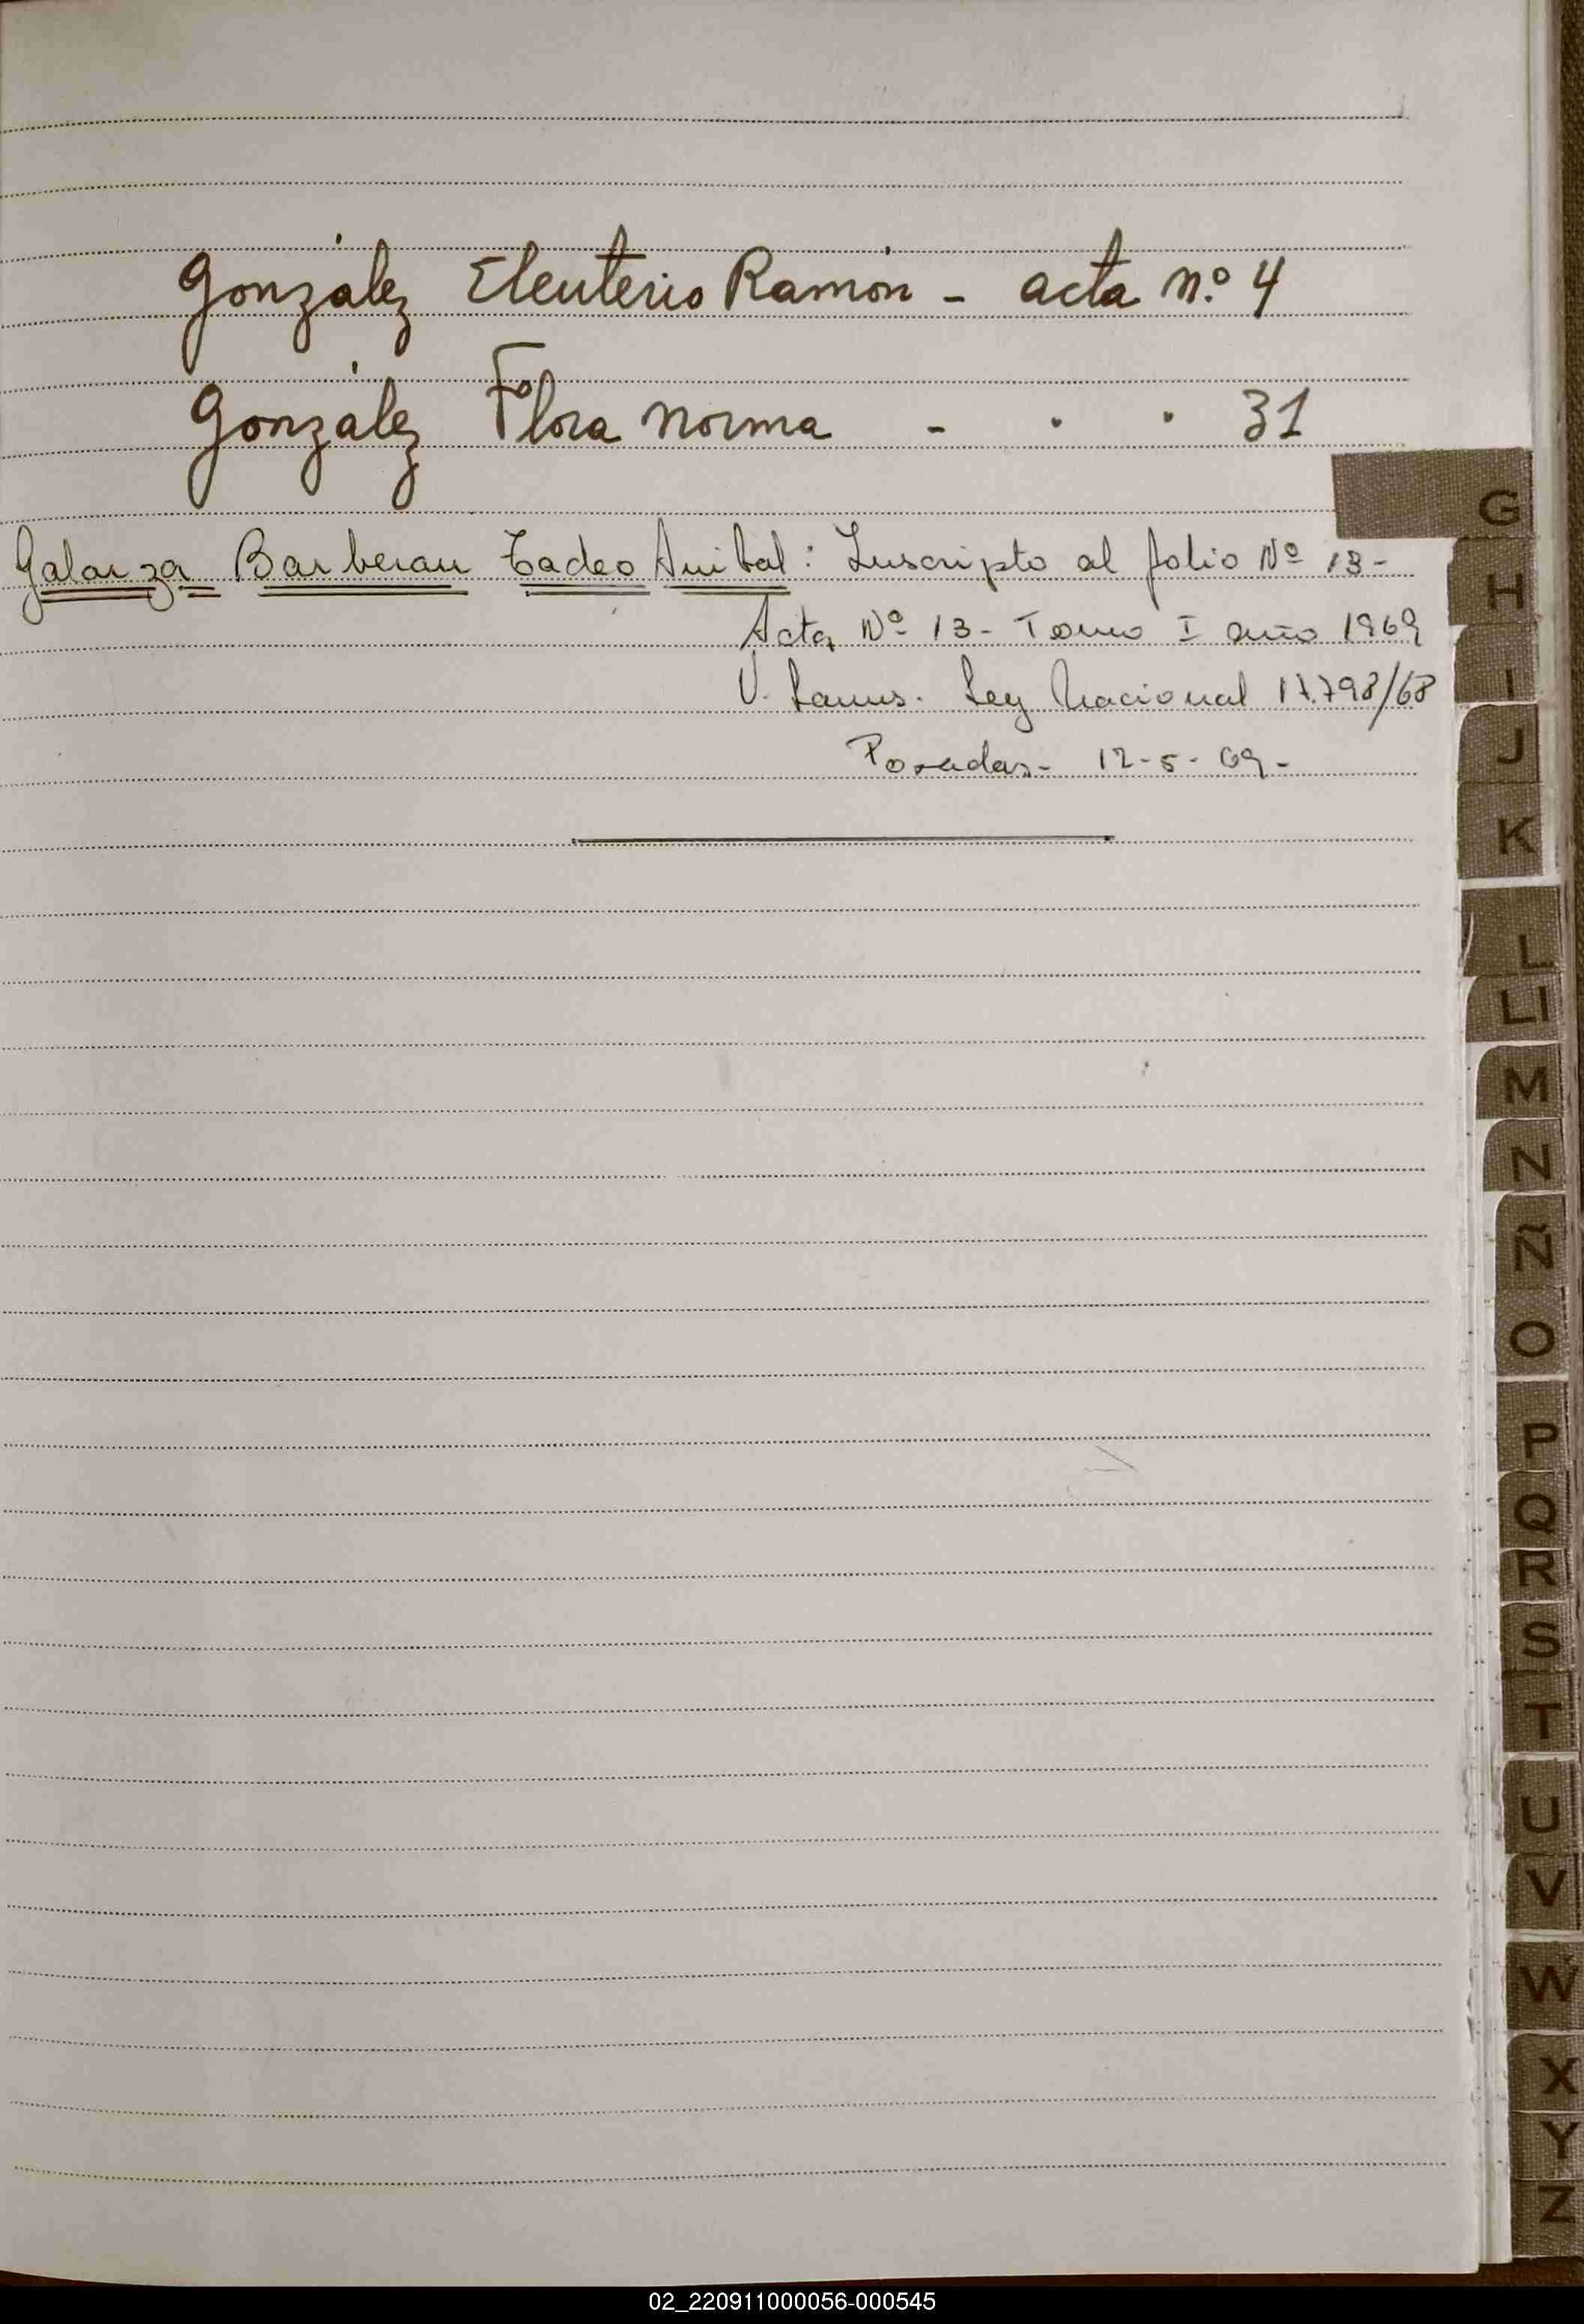 González Eleuterio Ramón - acta n.º 4
González Flora Norma - . . 31
Galarza Barberan Tadeo Anibal: Inscripto al folio Nº 13-
Acta Nº 13- Tomo I año 1969
Ley Nacional 17.798/68
Posadas- 12-5-69-
G
H
I
J
K
L
Ll
M
N
Ñ
O
P
Q
R
S
T
U
V
W
X
Y
Z
02_220911000056-000545